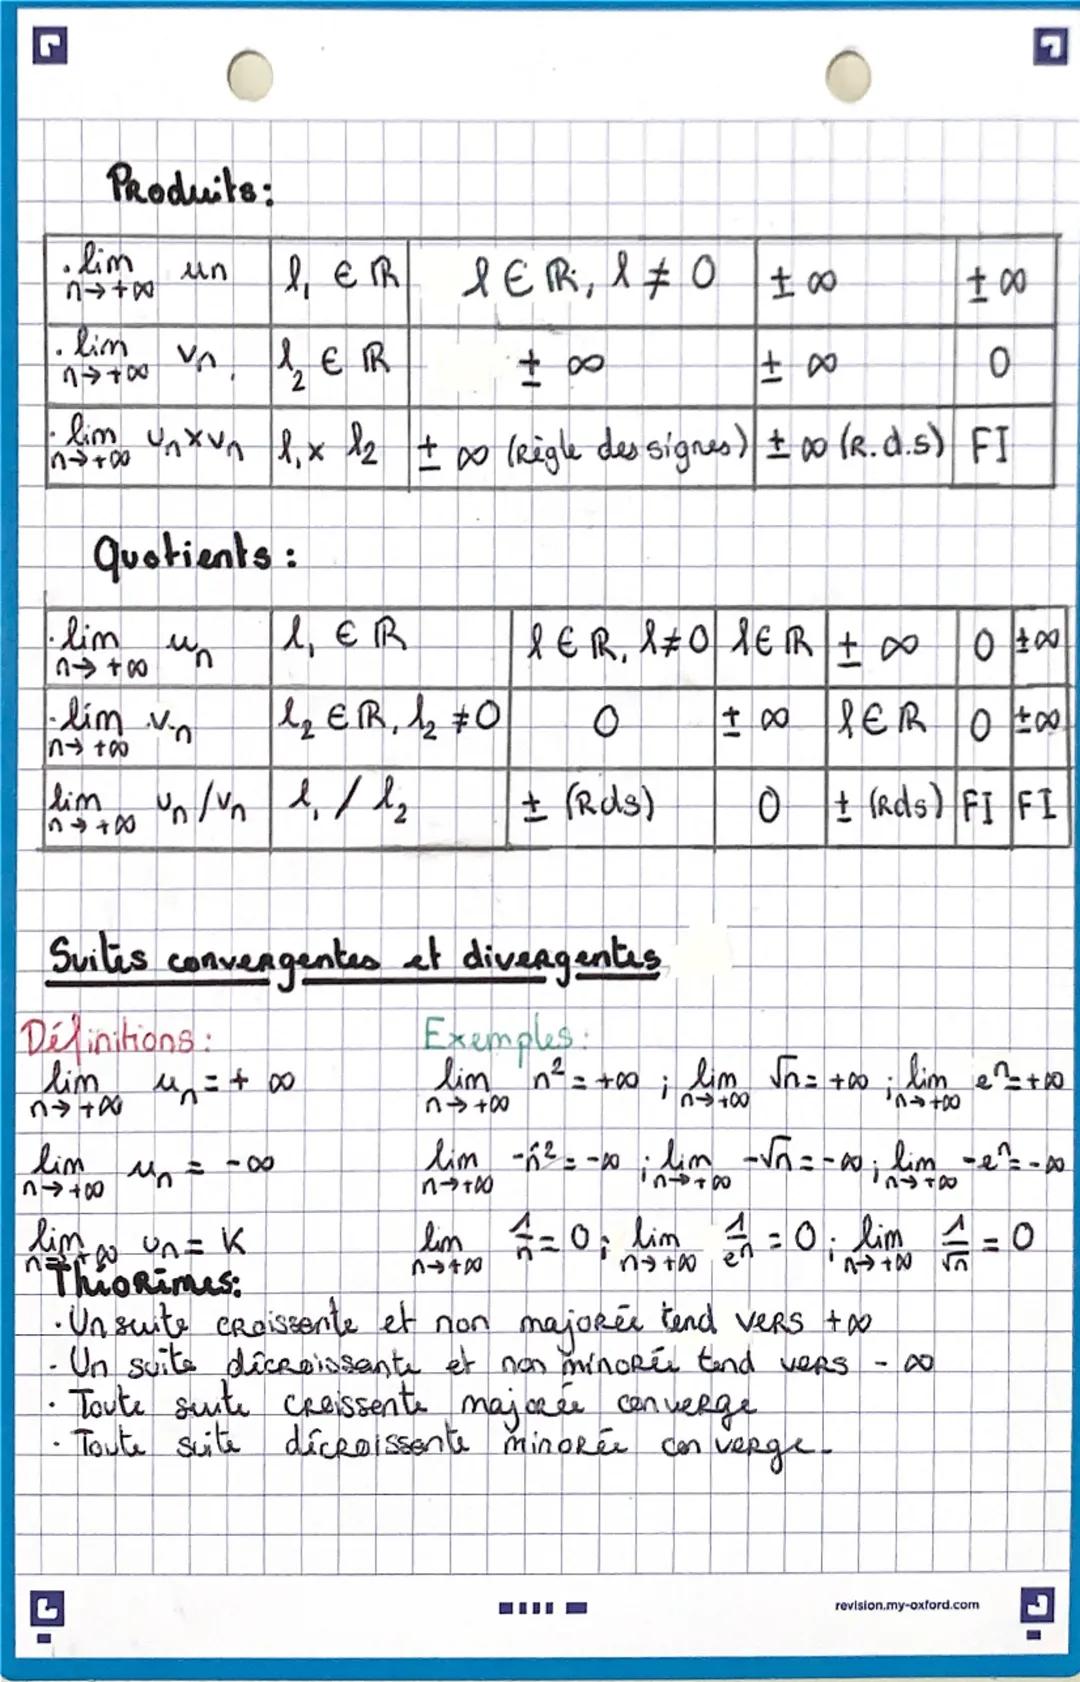 Produits :
. lim n→+∞ un | l₁ ∈ ℝ | l ∈ ℝ, l ≠ 0 | ± ∞ | ± ∞
. lim n→+∞ vn | l₂ ∈ ℝ | ± ∞ | ± ∞ | 0
. lim n→+∞ un×vn | l₁ × l₂ | ± ∞ (Règle des signes) | ± ∞ (R.d.s) | FI
Quotients :
. lim n→+∞ un | l₁ ∈ ℝ | l ∈ ℝ, l≠0 | l∈ℝ | ± ∞ | 0 | ±∞
. lim n→+∞ vn | l₂ ∈ ℝ, l₂ ≠0 | 0 | ± ∞ | l∈ℝ | 0 | ±∞
lim n→+∞ un/vn | l₁ / l₂ | ± (Rds) | 0 | ± (Rds) | FI | FI
Suites convergentes et divergentes
Définitions : Exemples :
lim n→+∞ un = + ∞ lim n→+∞ n² = +∞ ; lim n→+∞ √n = +∞ ; lim n→+∞ eⁿ = +∞
lim n→+∞ un = -∞ lim n→+∞ -n² = -∞ ; lim n→+∞ -√n = -∞ ; lim n→+∞ -eⁿ = -∞
lim n→+∞ un = K lim n→+∞ 1/n = 0 ; lim n→+∞ 1/eⁿ = 0 ; lim n→+∞ 1/√n = 0
Théorèmes :
. Un suite croissante et non majorée tend vers +∞
. Un suite décroissante et non minorée tend vers - ∞
. Toute suite croissante majorée converge
. Toute suite décroissante minorée converge.
revision.my-oxford.com